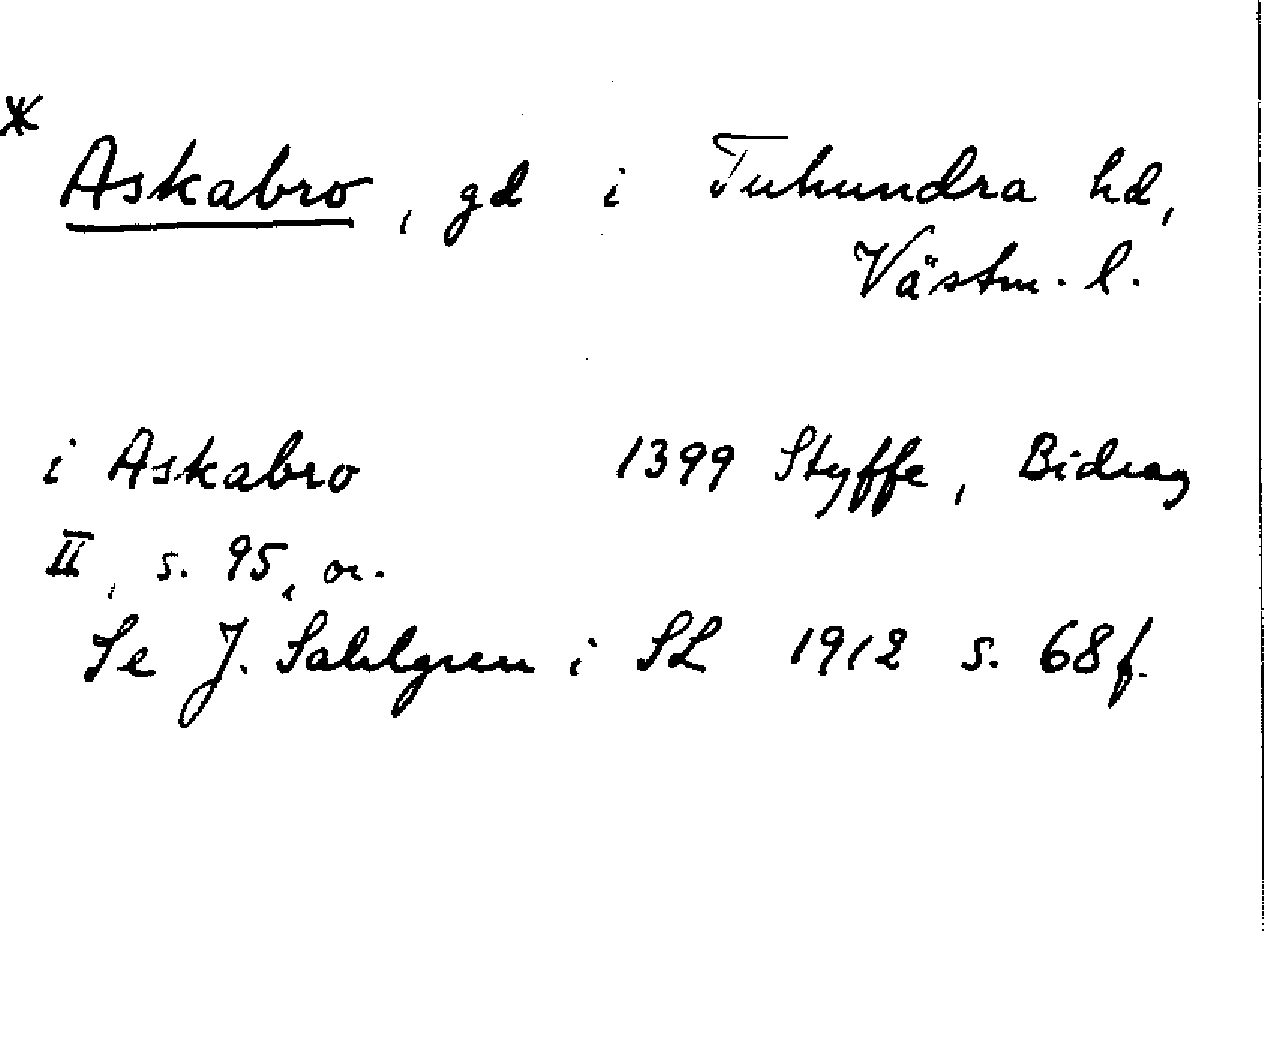 * Askabro, gd i Tuhundra hd,
Västm. l.
i Askabro 1399 Styffe, Bidrag
II, s. 95, or.
Se J. Sahlgren i SL 1912 s. 68f.